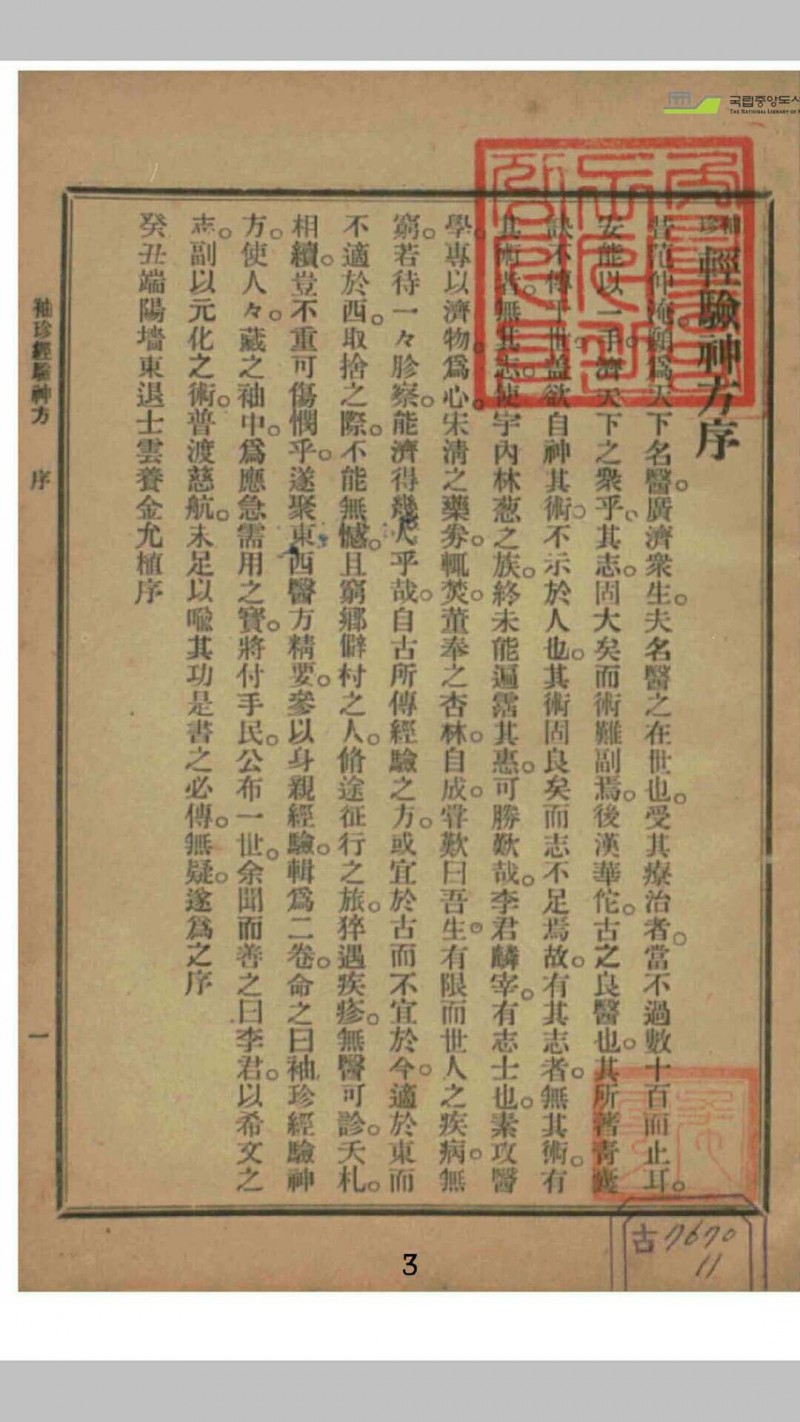 국립중앙도서
THE NATIONAL LIBRARY OF
袖珍 經驗神方序
昔范仲淹。願爲天下名醫。廣濟衆生。夫名醫之在世也。受其療治者。當不過數十百而止耳。
安能以一手。濟天下之衆乎。其志。固大矣而術難副焉。後漢華佗。古之良醫也。其所著靑囊
訣不傳于世。盖欲自神其術。不示於人也。其術固良矣而志不足焉。故。有其志者。無其術。有
其術者。無其志。使宇內林葱之族。終未能遍霑其惠。可勝歎哉。李君麟宰。有志士也。素攻醫
學。專以濟物。爲心。宋淸之藥券。輒焚。董奉之杏林。自成。嘗歎曰吾生。有限而世人之疾病。無
窮。若待一々胗察。能濟得幾人乎哉。自古所傳經驗之方。或宜於古而不宜於今。適於東而
不適於西。取捨之際。不能無憾。且窮鄕僻村之人。脩途征行之旅。猝遇疾疹。無醫可診。夭札。
相續。豈不重可傷憫乎。遂聚東西醫方精要。參以身親經驗。輯爲二卷。命之曰袖珍經驗神
方。使人々。藏之袖中。爲應急需用之寶。將付手民。公布一世。余聞而善之曰李君。以希文之
志。副以元化之術。普渡慈航。未足以喩其功是書之必傳。無疑。遂爲之序
癸丑端陽墻東退士雲養金允植序
袖珍經驗神方 序 一
古7670
11
3